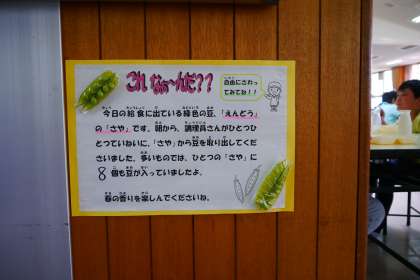 これ なぁ〜んだ??
自由にさわっ
てみてね!!
今日の給食に出ている緑色の豆、「えんどう」
の「さや」です。朝から、調理員さんがひとつひ
とつていねいに、「さや」から豆を取り出してくだ
さいました。多いものでは、ひとつの「さや」に
8個も豆が入っていましたよ。
春の香りを楽しんでくださいね。